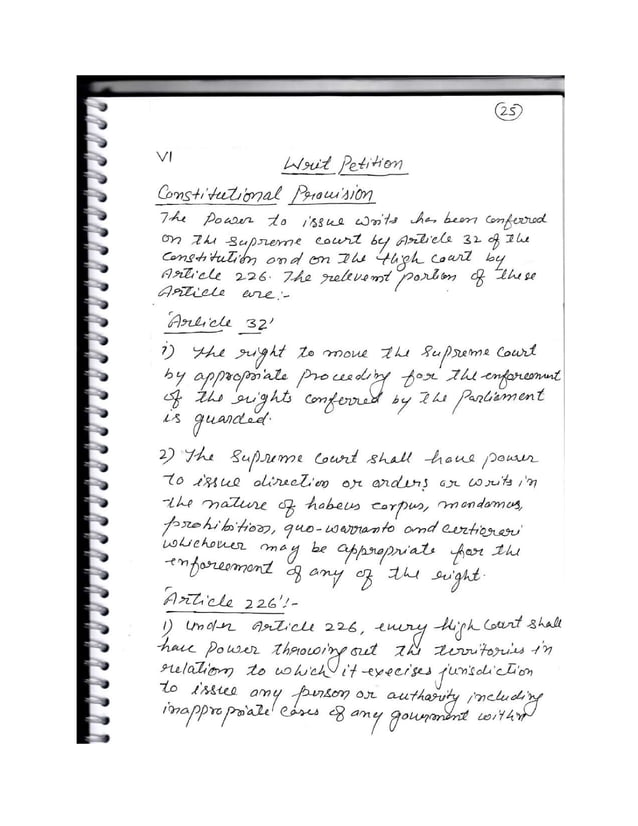 25
VI
Writ Petition
Constitutional Provision
The Power to issue writs has been conferred
on the Supreme court by Article 32 of the
Constitution and on the High Court by
Article 226. The relevent portion of these
Article are:-
'Article 32'
1) The right to move the Supreme Court
by appropriate Proceeding for the enforcement
of the rights conferred by the Parliament
is guarded.
2) The Supreme Court shall have power
to issue direction or orders or writs in
the nature of habeus corpus, mandamus,
prohibition, quo-warranto and certiorari
whichever may be appropriate for the
enforcement of any of the right.
'Article 226':-
1) Under Article 226, every High Court shall
have Power throwing out the territories in
relation to which it execises jurisdiction
to issue any person or authority including
inappropriate cases of any government within